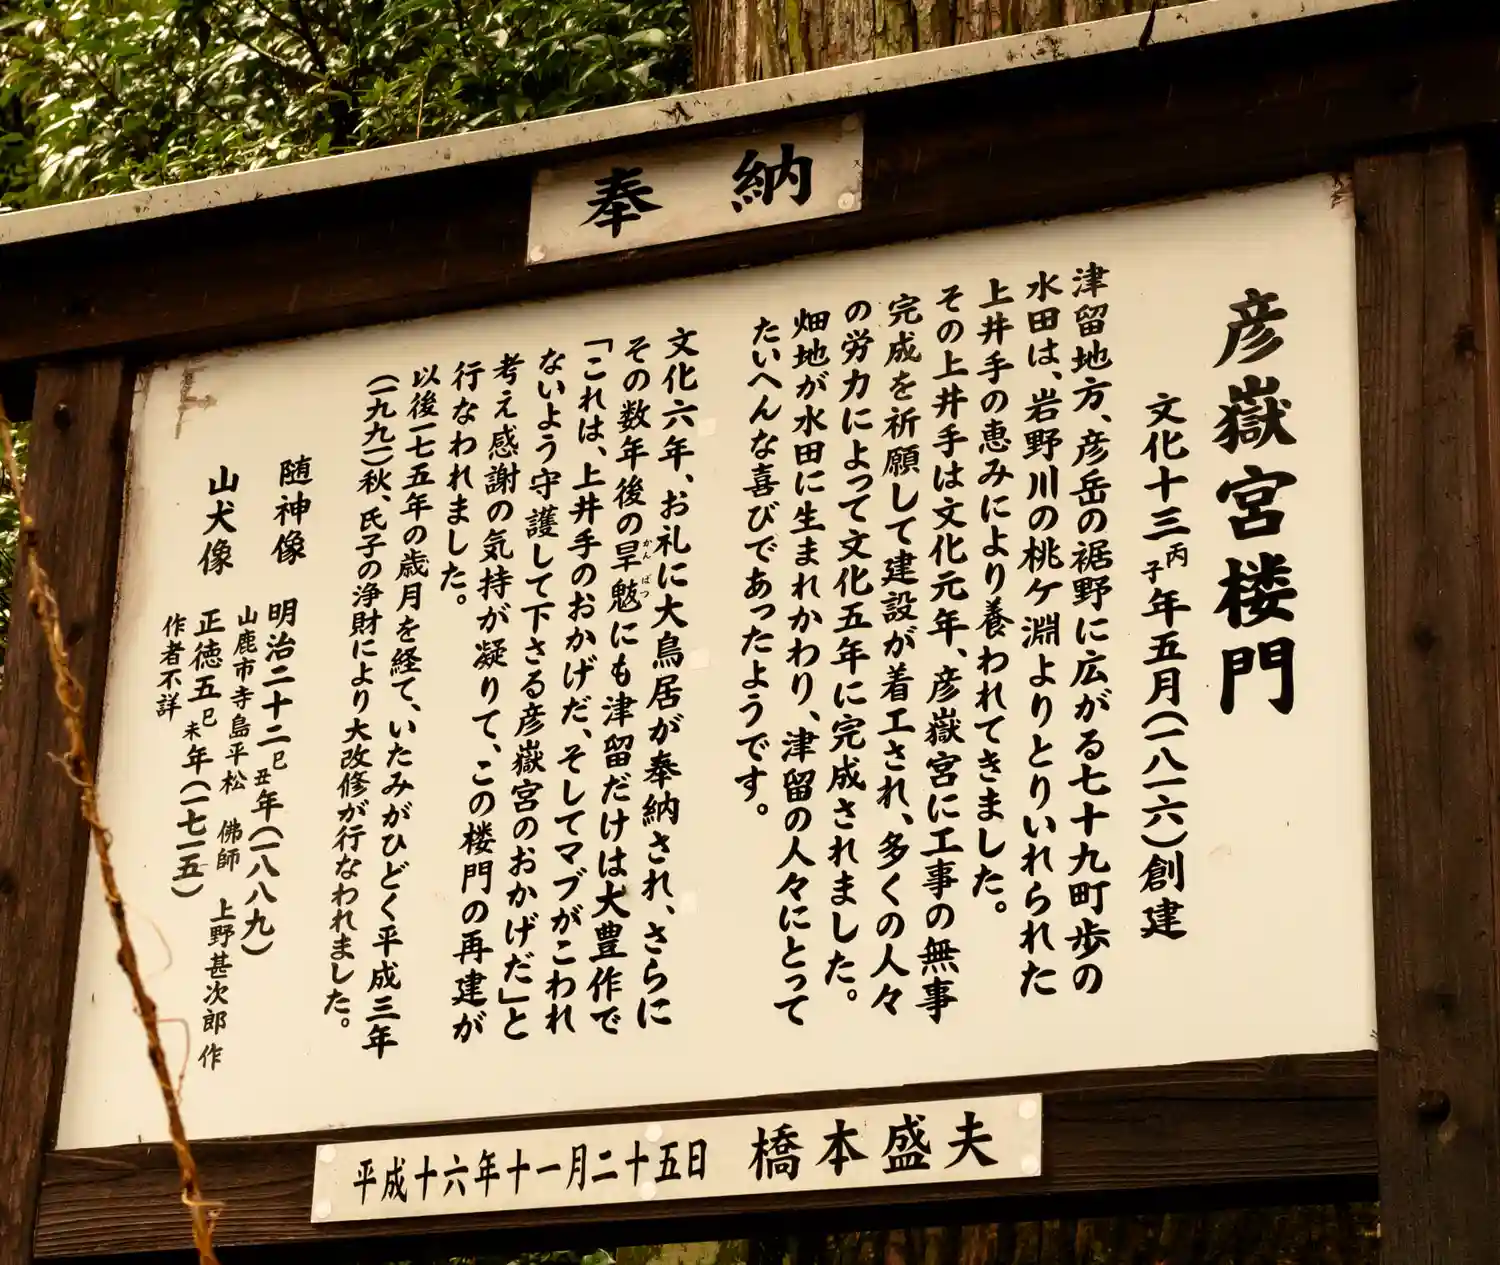 奉納
彦嶽宮楼門
文化十三丙子年五月(一八一六)創建
津留地方、彦岳の裾野に広がる七十九町歩の
水田は、岩野川の桃ケ淵よりとりいれられた
上井手の恵みにより養われてきました。
その上井手は文化元年、彦嶽宮に工事の無事
完成を祈願して建設が着工され、多くの人々
の労力によって文化五年に完成されました。
畑地が水田に生まれかわり、津留の人々にとって
たいへんな喜びであったようです。
文化六年、お礼に大鳥居が奉納され、さらに
その数年後の旱魃にも津留だけは大豊作で
かんばつ
「これは、上井手のおかげだ、そしてマブがこわれ
ないよう守護して下さる彦嶽宮のおかげだ」と
考え感謝の気持が凝りて、この楼門の再建が
行なわれました。
以後一七五年の歳月を経て、いたみがひどく平成三年
(一九九一)秋、氏子の浄財により大改修が行なわれました。
随神像 明治二十二巳丑年(一八八九)
山鹿市寺島平松 佛師 上野甚次郎作
山犬像 正徳五巳未年(一七一五)
作者不詳
平成十六年十一月二十五日 橋本盛夫